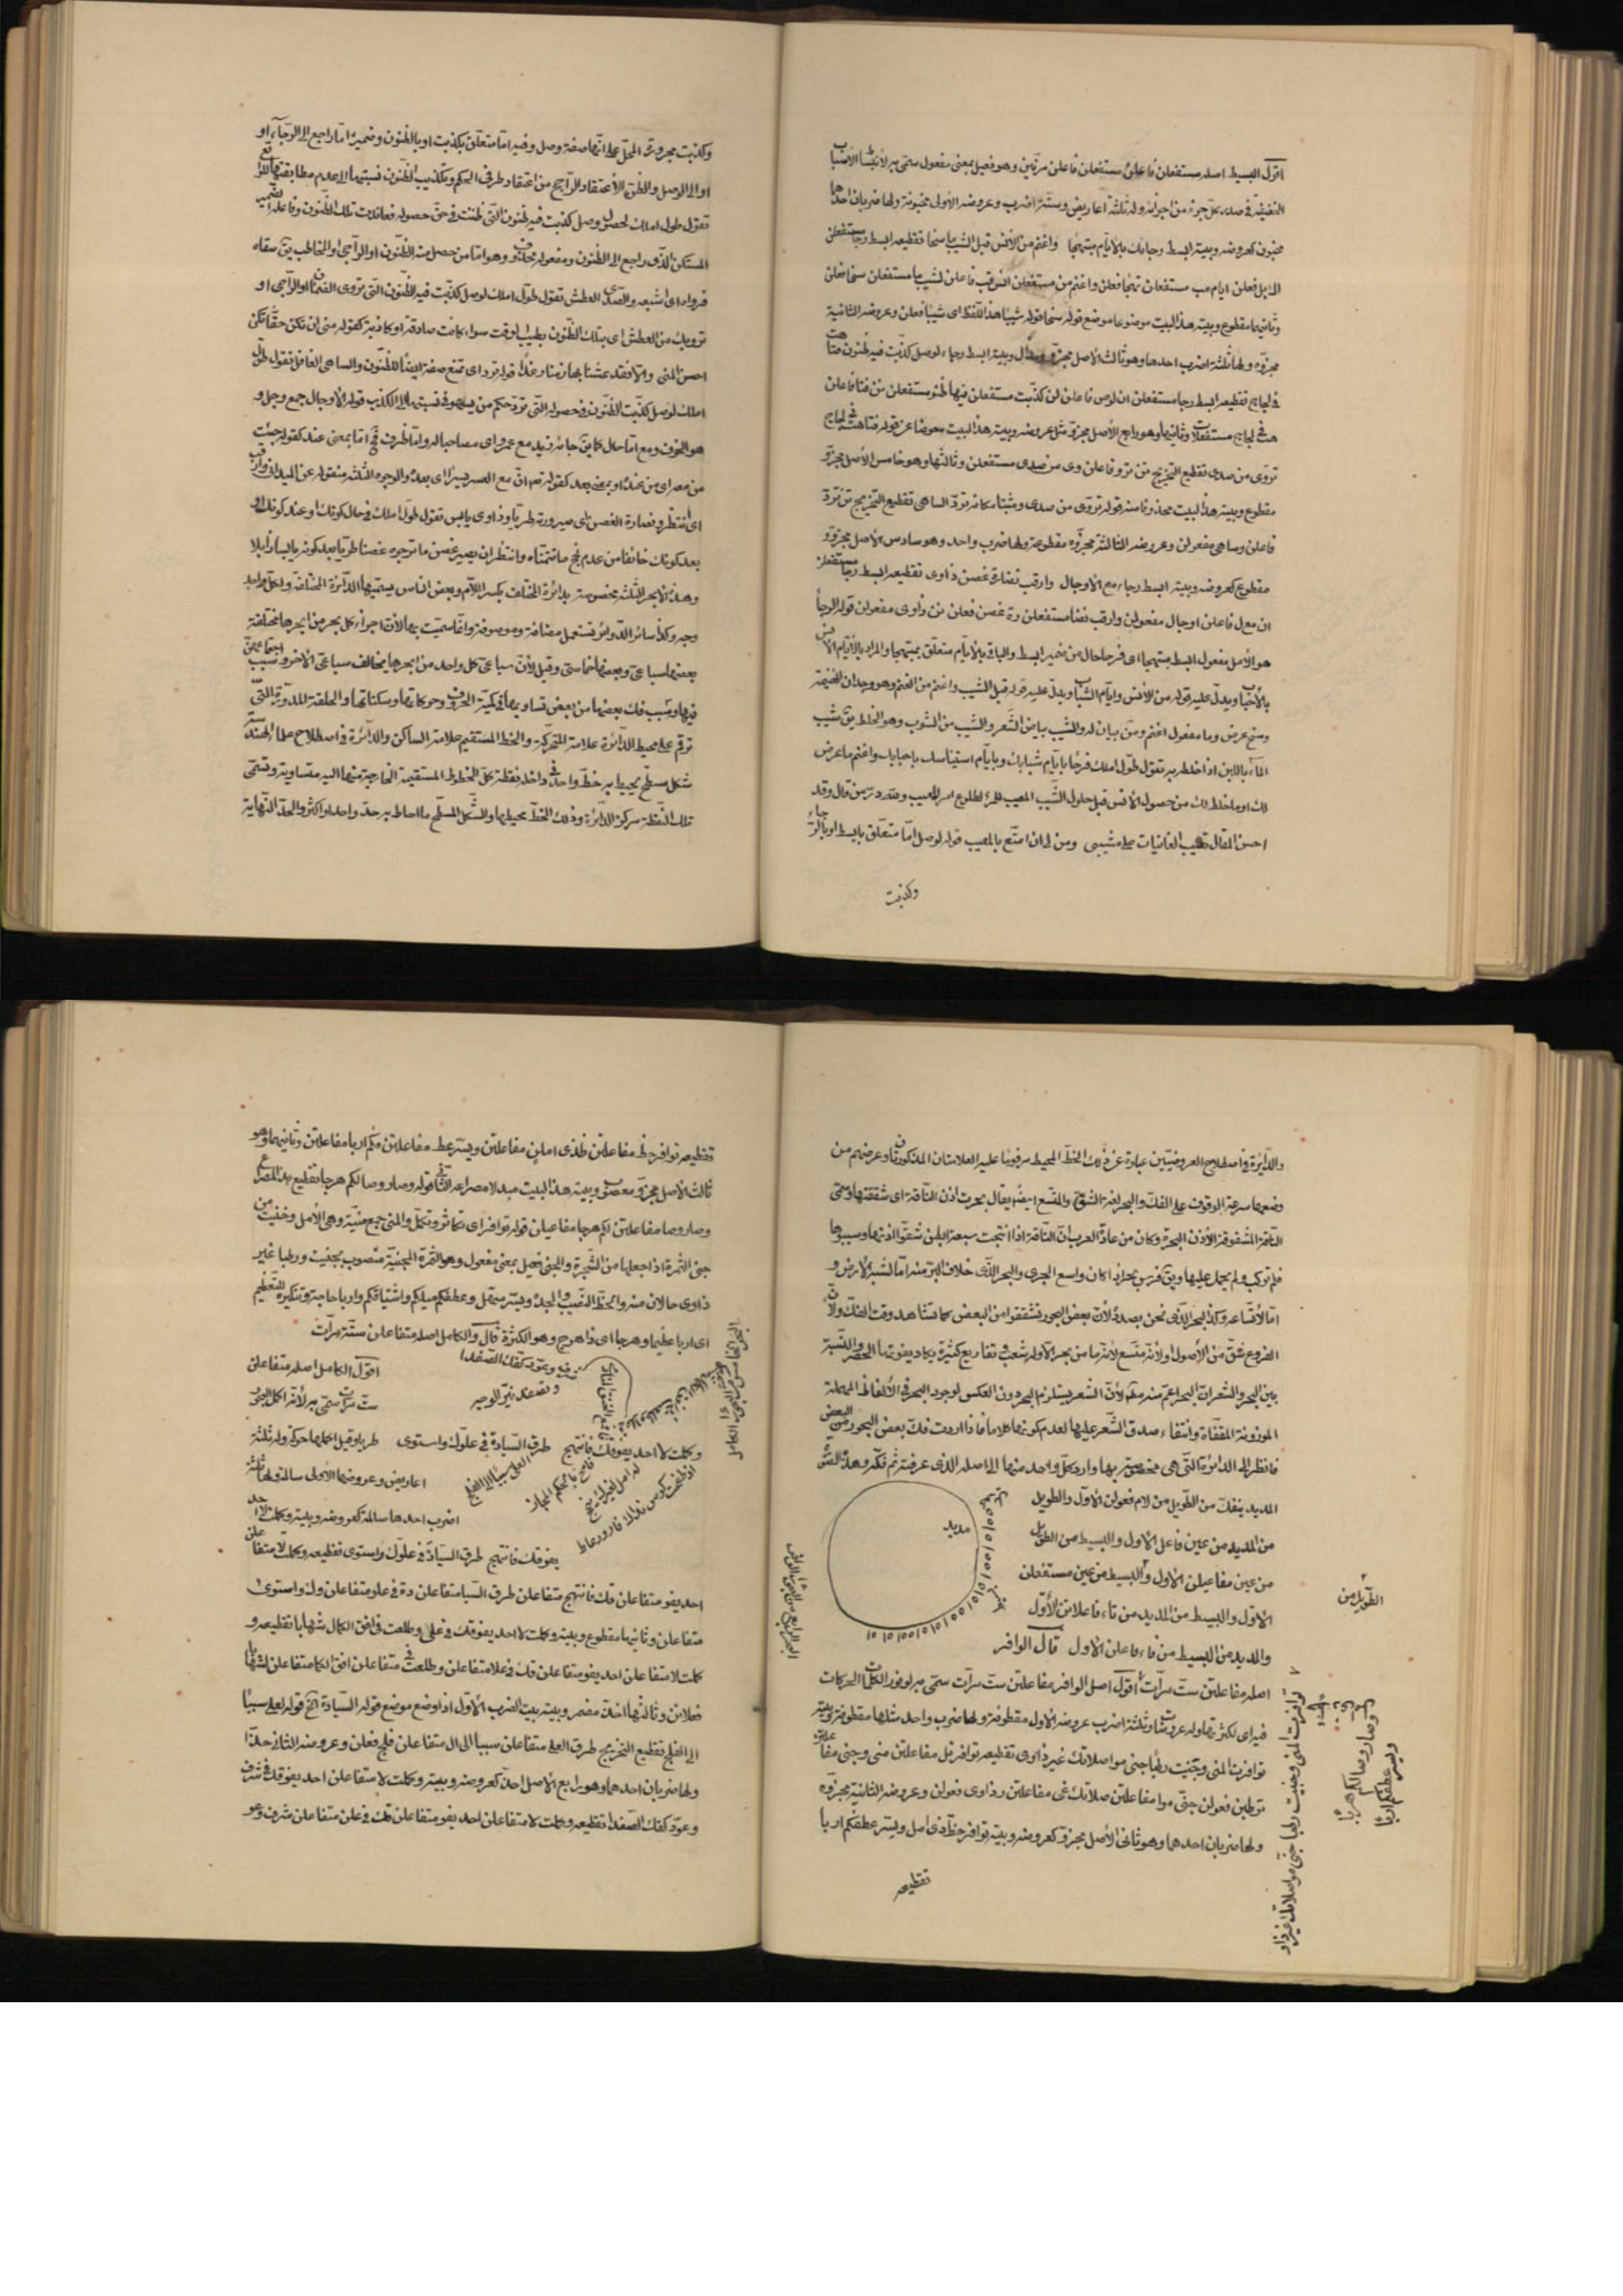 اقول البسيط اصله مستفعلن فاعلن مستفعلن فاعلن مرتين وهو فعيل بمعنى مفعول سمى به لانبساط الاسباب
الخفيفة فى صدر كل جزء من اجزائه وله ثلثة اعاريض وستة اضرب وعروضه الاولى مخبونة ولها ضربان احدهما
مخبون كعروضه وبيته ابسط رجائك بالايام مبتهجا واغنم من الانس قبل الشيب ما سنحا تقطيعه ابسط رجا مستفعلن
ئك بل فعلن ايام مب مستفعلن تهجا فعلن واغنم من مستفعلن انس قب فاعلن لشيب ما مستفعلن سنحا فعلن
وثانيهما مقطوع وبيته هذا البيت موضوعا موضع قوله سنحا قوله شيبا هذا اللفظ اى شيبا فعلن وعروضه الثانية
مجزوه ولها ثلثة اضرب احدها وهو ثالث الاصل مجزو مذال وبيته ابسط رجاء لوصل كذبت فيه ظنون متاهت
فى لجاج تقطيعه ابسط رجا مستفعلن ان لوص فاعلن لن كذبت مستفعلن فيها ظنو مستفعلن نن متا فاعلن
هت فى لجاج مستفعلان وثانيها وهو رابع الاصل مجزو مثل عروضه وبيته هذا البيت معوضا عن قوله متاهت فى لجاج
تروى من صدى تقطيع التخريج نن ترو فاعلن وى من صدى مستفعلن وثالثها وهو خامس الاصل مجزو
مقطوع وبيته هذا البيت محذوفا منه قوله تروى من صدى ومثبتا مكانه تردة الساهى تقطيع التخريج نن تردة
فاعلن وساهى مفعولن وعروضه الثالثة مجزوه مقطوعة ولها ضرب واحد وهو سادس الاصل مجزو
مقطوع كعروضه وبيته ابسط رجاء مع الاوجال وارقب نضارة غصن ذاوى تقطيعه ابسط رجا مستفعلن
ان مع ل فاعلن اوجال مفعولن وارقب نضا مستفعلن رة غصن فعلن نن ذاوى مفعولن قوله الرجا
هو الامل مفعول ابسط مبتهجا اى فرحا حال من ضمير ابسط والباء فى بالايام متعلق بمبتهجا والمراد بالايام الانس
بالاحباب ويدل عليه قوله من الانس وايام الشباب ويدل عليه قوله قبل الشيب واغنم من الغنم وهو وجدان الغنيمة
وسنح عرض وما مفعول اغنم ومن بيان له والشيب بياض الشعر والشيب من الشوب وهو الخلط يق شيب
الماء باللبن اذا خلط به تقول طول املك فرحا بايام شبابك وبايام استيناسك باحبابك واغنم ما عرض
لك او ما خلط لك من حصول الانس قبل حلول الشيب المعيب للمرء لطلوع امر المعيب ولله در من قال وقد
احسن المقال تعيب الغانيات على مشيبى ومن لى ان امتع بالمعيب قوله لوصل اما متعلق بابسط او بالرجاء
وكذبت
وكذبت مجرورة المحل على انها صفة وصل وفيه اما متعلق بكذبت او بالظنون وضميره اما راجع الى الرجاء او
او الى الوصل والظن الاعتقاد الراجح من اعتقاد طرفى الحكم وتكذيب الظنون نسبتها الى عدم مطابقتها للواقع
تقول طول املك لحصول وصل كذبت فيه ظنون التى ظننت فى حق حصوله فعاندت تلك الظنون وفاعله الضمير
المستكن الذى راجع الى الظنون ومفعوله محذوف وهو اما من حصل منه الظنون او الراجى او المخاطب يق سقاه
فرواه اى اشبعه والصدى العطش تقول طول املك لوصل كذبت فيه الظنون التى تروى الظمان او الراجى او
ترويك من العطش اى بتلك الظنون يطيب الوقت سواء كانت صادقة او كاذبة كقوله منى ان تكن حقا تكن
احسن المنى والا فقد عشنا بها زمنا رغدا قوله ترد اى تمنع صفة ايضا للظنون والساهى الغافل تقول طول
املك لوصل كذبت الظنون فى حصوله التى ترد حكم من يسهو فى نسبتها الى الكذب قوله الاوجال جمع وجل و
هو الخوف ومع اما حال كما يق جائز زيد مع عمرو اى مصاحبا له واما ظرف فهى اما بمعنى عند كقوله جئت
من معه اى من عنده او بمعنى بعد كقوله تع ان مع العسر يسرا اى بعده والوجوه الثلثة منقولة عن الميدانى وارقب
اى انتظر ونضارة الغصن اى صيرورته طريا وذاوى يابس تقول طول املك فى حال كونك او عند كونك او
بعد كونك خائفا من عدم نجح ما تتمناه وانتظر ان يصير غصن ما ترجوه غصنا طريا بعد كونه يابسا ذابلا
وهذه الابحر الثلثة مخصوصة بدائرة المختلف بكسر اللام وبعض الناس يسميها الدائرة المختلفة ولكل واحد
وجه وكذا سائر الدوائر تستعمل مضافة وموصوفة وانما سميت بها لان اجزاء كل بحر من ابحرها مختلفة
بعضها سباعى وبعضها خماسى وقيل لان سباعى كل واحد من ابحرها يخالف سباعى الاخر وسبب اجتماعهن
فيها وسبب فك بعضها من بعض تساويها فى كمية الحروف وحركاتها وسكناتها والحلقة المدورة التى
ترقم على محيط الدائرة علامة المتحركة والخط المستقيم علامة الساكن والدائرة فى اصطلاح علماء الهندسة
شكل مسطح يحيط به خط واحد فى داخله نقطة كل الخطوط المستقيمة الخارجة منها اليه متساوية وتسمى
تلك النقطة مركز الدائرة وذلك الخط محيطها والشكل المسطح ما احاط به حد واحد او اكثر والحد النهاية
والدائرة فى اصطلاح العروضيين عبارة عن ذلك الخط المحيط مرقوما عليه العلامتان المذكورتان وعرضهم من
وضعها سرعة الوقوف على الفك والبحر لغة الشق والمتسع ايضا يقال بحرت اذن الناقة اى شققتها وسمى
الناقة المشقوقة الاذن البحيرة وكان من عادة العرب ان الناقة اذا انتجت سبعة ابطن شقوا اذنها وسيبوها
فلم تركب ولم يحمل عليها ويق فرس بحر اذا كان واسع الجرى والبحر الذى خلاف البر منه اما لشقه الارض و
اما لاتساعه وكذا البحر الذى نحن بصدده لان بعض البحور تشققوا من البعض كما تشاهد وقت الفك ولان
الفروع شق من الاصول او لانه متسع لانه ما من بحر الا وله شعب وتفاريع كثيرة يكاد يفوتها الحصر والنسبة
بين البحر والشعر ان البحر اعم منه مط لان الشعر يستلزم البحر دون العكس لوجود البحر فى الالفاظ المهملة
الموزونة المقفاة وانتفاء صدق الشعر عليها لعدم كونها كلاما فاذا اردت فك بعض البحور من البعض
فانظر الى الدائرة التى هى مختصة بها وارد كل واحد منها الى اصله الذى عرفته ثم فكه
المديد ينفك من الطويل من لام فعولن الاول والطويل
من المديد من عين فاعلن الاول والبسيط من الطويل
من عين مفاعيلن الاول والبسيط من عين مستفعلن
الطويل من
الاول والبسيط من المديد من تاء فاعلاتن الاول
والمديد من البسيط من فاء فاعلن الاول قال الوافر
مديد
اصله مفاعلتن ست مرات اقول اصل الوافر مفاعلتن ست مرات سمى به لوفور الحركات
فيه اى لكثرتها وله عروضان وثلثة اضرب عروضه الاولى مقطوفة ولها ضرب واحد مثلها مقطوف وبيته
توافرت المنى وجنيت رطبا جنى مواصلاتك غير ذاوى تقطيعه توافر تل مفاعلتن منى وجنى مفاعلتن
ت رطبن فعولن جنى موا مفاعلتن صلاتك غى مفاعلتن رذاوى فعولن وعروضه الثانية مجزوه
ولها ضربان احدهما وهو ثانى الاصل مجزو كعروضه وبيته توافر حظ ذى امل ويسر عطفكم اربا
تقطيعه
توافرت المنى وجنيت رطبا جنى مواصلاتك غير ذاو
وصار وصالكم هرجا
ويسر عطفكم اربا
تقطيعه توافر حظ مفاعلتن ظ ذى املن مفاعلتن ويسر عط مفاعلتن فكم اربا مفاعلتن وثانيهما وهو
ثالث الاصل مجزو معصوب وبيته هذا البيت مبدلا مصراعه الثانى قوله وصار وصالكم هرجا تقطيع هذا المصراع
وصار وصا مفاعلتن لكم هرجا مفاعيلن قوله توافر اى تكاثر وتكمل والمنى جمع منية وهى الامل وجنيت من
جنى الثمرة اذا جعلها من الشجرة والجنى فعيل بمعنى مفعول وهو الثمرة المجنية منصوب بجنيت ورطبا غير
ذاوى حالان منه والحظ النصيب والجد ويسر سهل وعطفكم ميلكم واشتياقكم واربا حاجة وتنكيره للتعظيم
اى اربا عظيما وهرجا اى ذا هرج وهو الكثرة قال والكامل اصله متفاعلن ستة مرات
اقول الكامل اصله متفاعلن
ست مرات سمى به لانه اكمل البحور
وكملت لا احد يفوقك فانتهج طرق السيادة فى علوك واستوى
طربا وقيل اكملها حركة وله ثلثة
اعاريض وعروضها الاولى سالمة ولها ثلثة
اضرب احدها سالمة كعروضه وبيته وكملت لا احد
يفوقك فانتهج طرق السيادة فى علوك واستوى تقطيعه وكملت لا متفاعلن
احد يفو متفاعلن قك فانتهج متفاعلن طرق السيا متفاعلن دة فى علو متفاعلن وك واستوى
متفاعلن وثانيها مقطوع وبيته وكملت لا احد يفوقك فى على وطلعت فى افق الكمال شهابا تقطيعه و
كملت لا متفاعلن احد يفو متفاعلن قك فى علا متفاعلن وطلعت فى متفاعلن افق الكما متفاعلن ل شهابا
فعلاتن وثالثها احذ مضمر وبيته بيت الضرب الاول اذا وضع موضع قوله السيادة الخ قوله لعلى سببا
الى الفلج تقطيع التخريج طرق العلى متفاعلن سببا الى ال متفاعلن فلج فعلن وعروضه الثانى حذا
ولها ضربان احدهما وهو رابع الاصل احذ كعروضه وبيته وكملت لا متفاعلن احد يفوقك فى شرف
وعوّد كفك الصفدا تقطيعه وكملت لا متفاعلن احد يفو متفاعلن قك فى علن متفاعلن شرف وعو